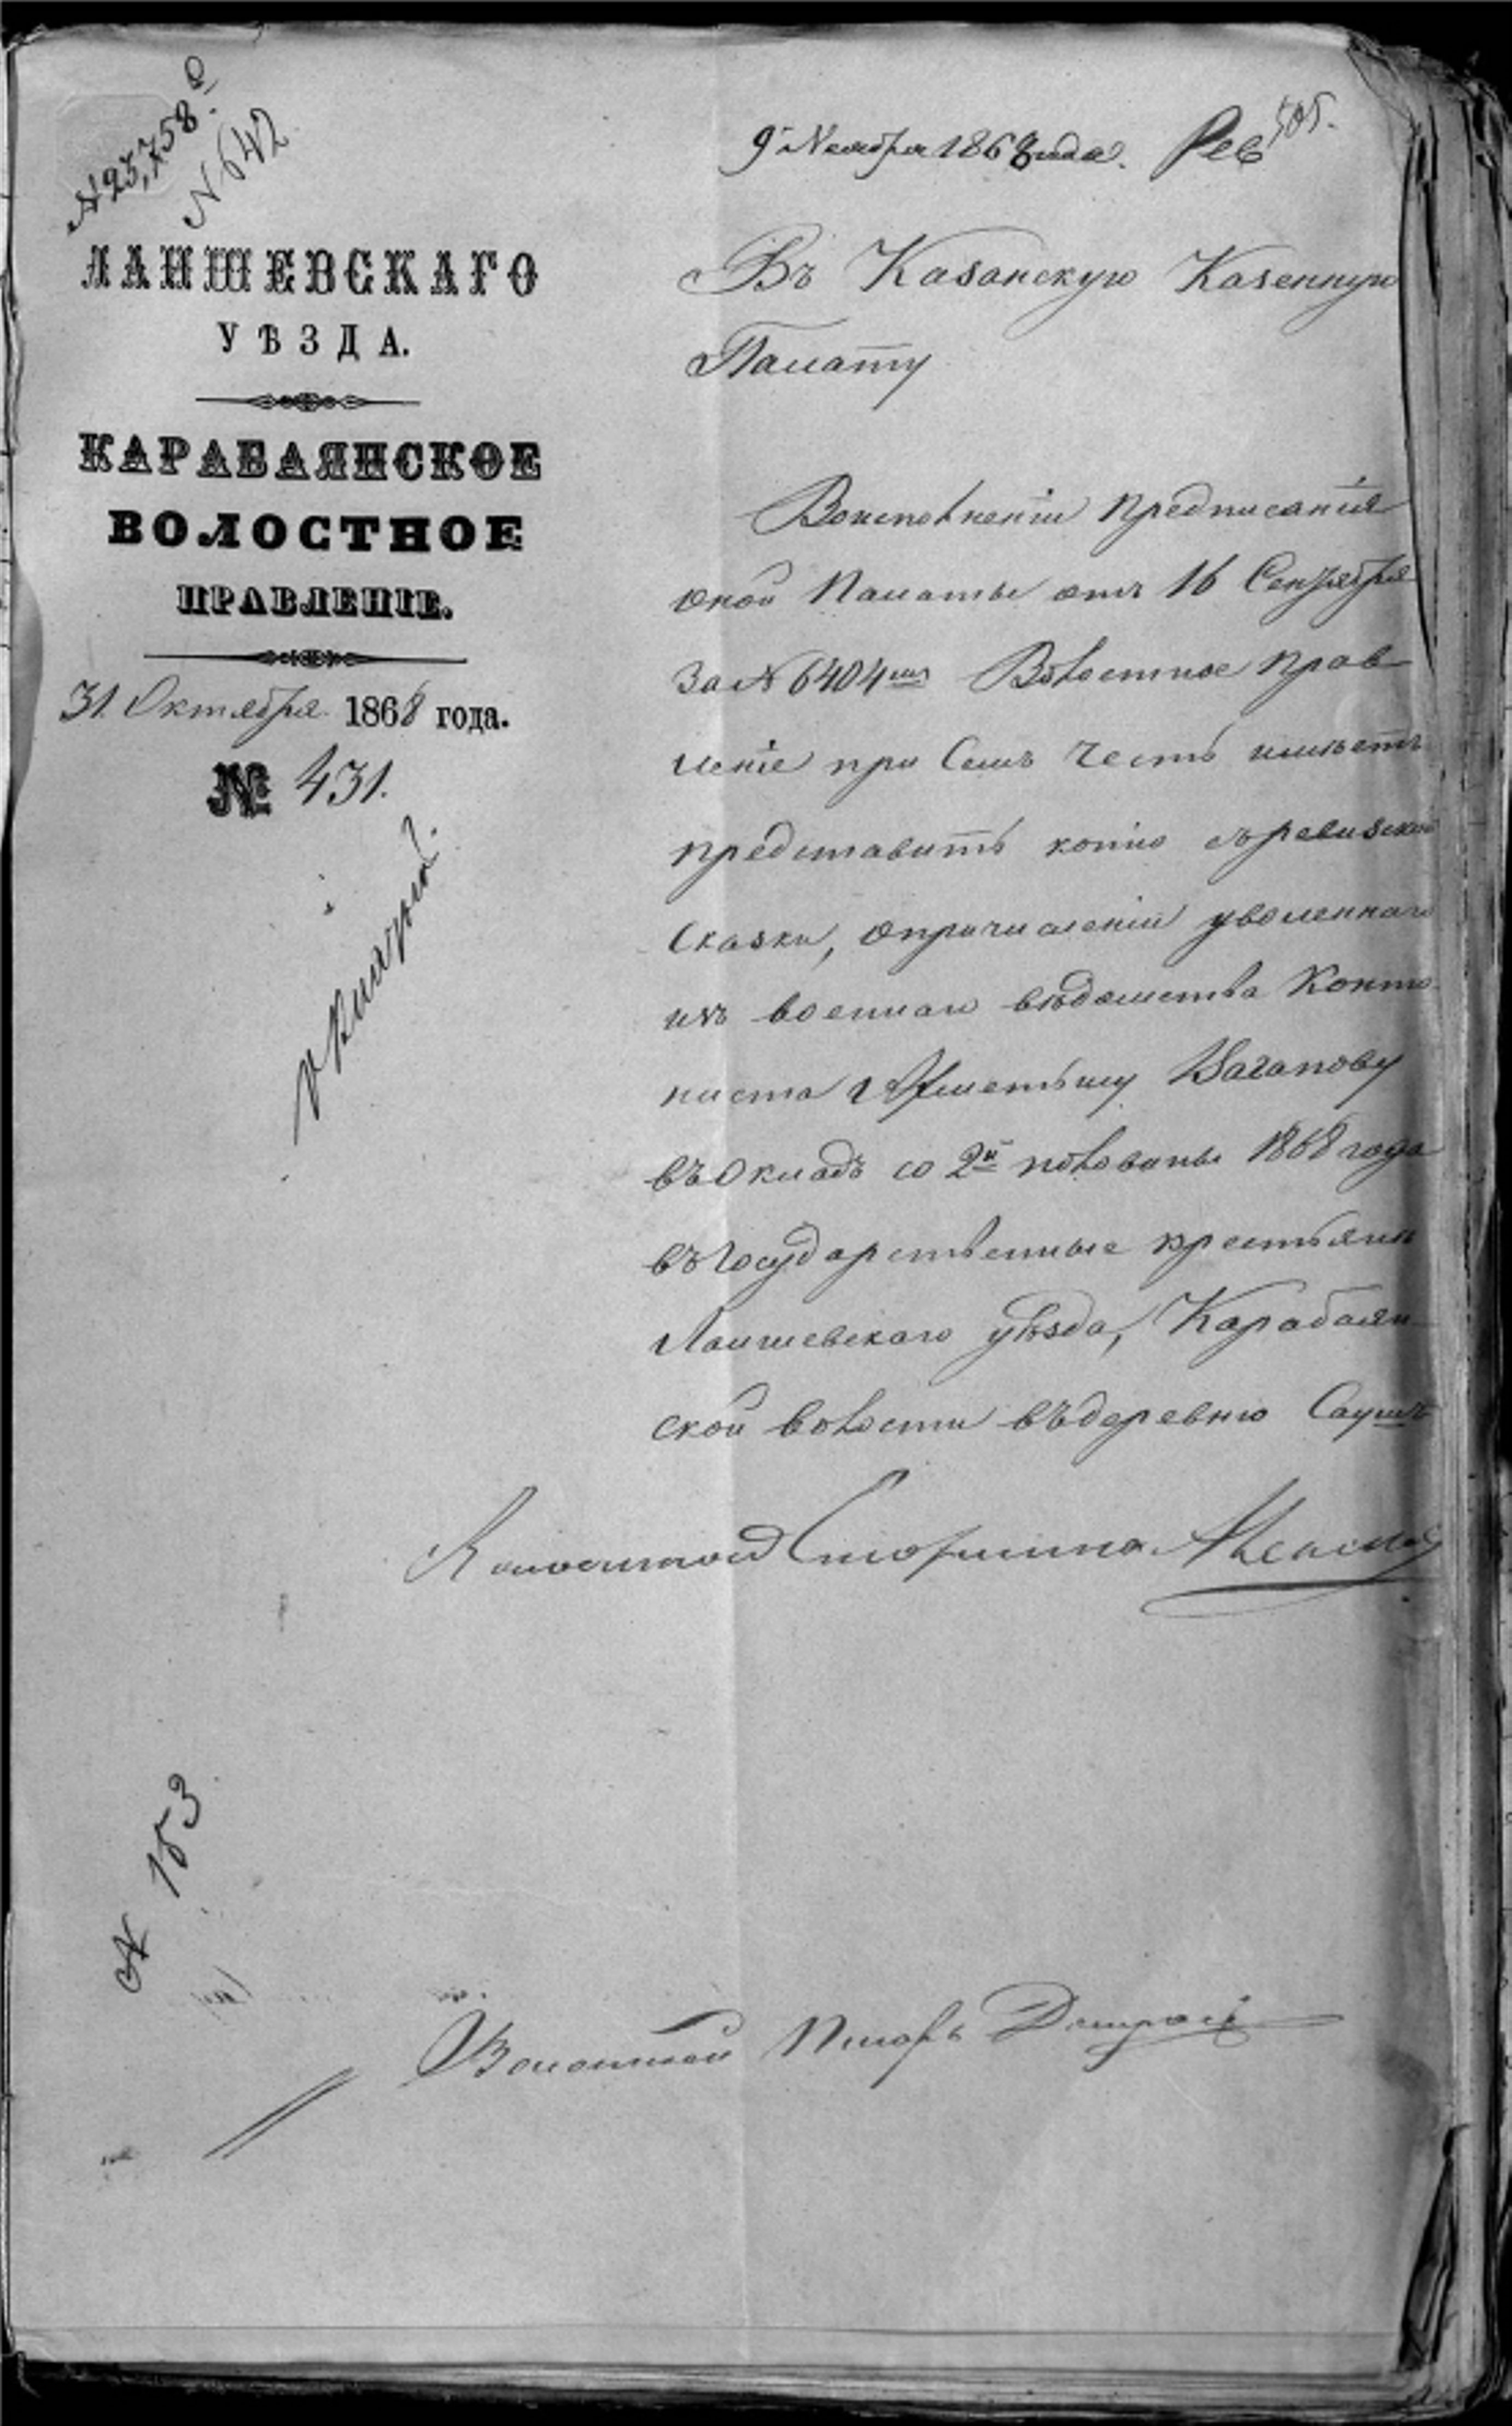 № 23,758.
№ 642
ЛАИШЕВСКАГО
УѢЗДА.
КАРАБАЯНСКОЕ
ВОЛОСТНОЕ
ПРАВЛЕНІЕ.
31. Октября 1868 года.
№ 431.
9 Ноября 1868 года. Рев
405.
Въ Казанскую Казенную
Палату
Воисполненіи предписанія
оной Палаты отъ 16 Сентября
за № 6404мъ Волостное Прав
леніе при семъ честь имѣетъ
представить копію съ ревизской
сказки, опричисленіи уволеннаго
изъ военнаго вѣдомстваКанто
ниста Ахметьзну Ваганову
въ окладъ со 2й половины 1868 года
въ Государственные крестьяне
Лаишевскаго уѣзда, Карабаян
ской волости въ деревню Сауш
Волостной Старшина
№ 153
Волостной Писарь